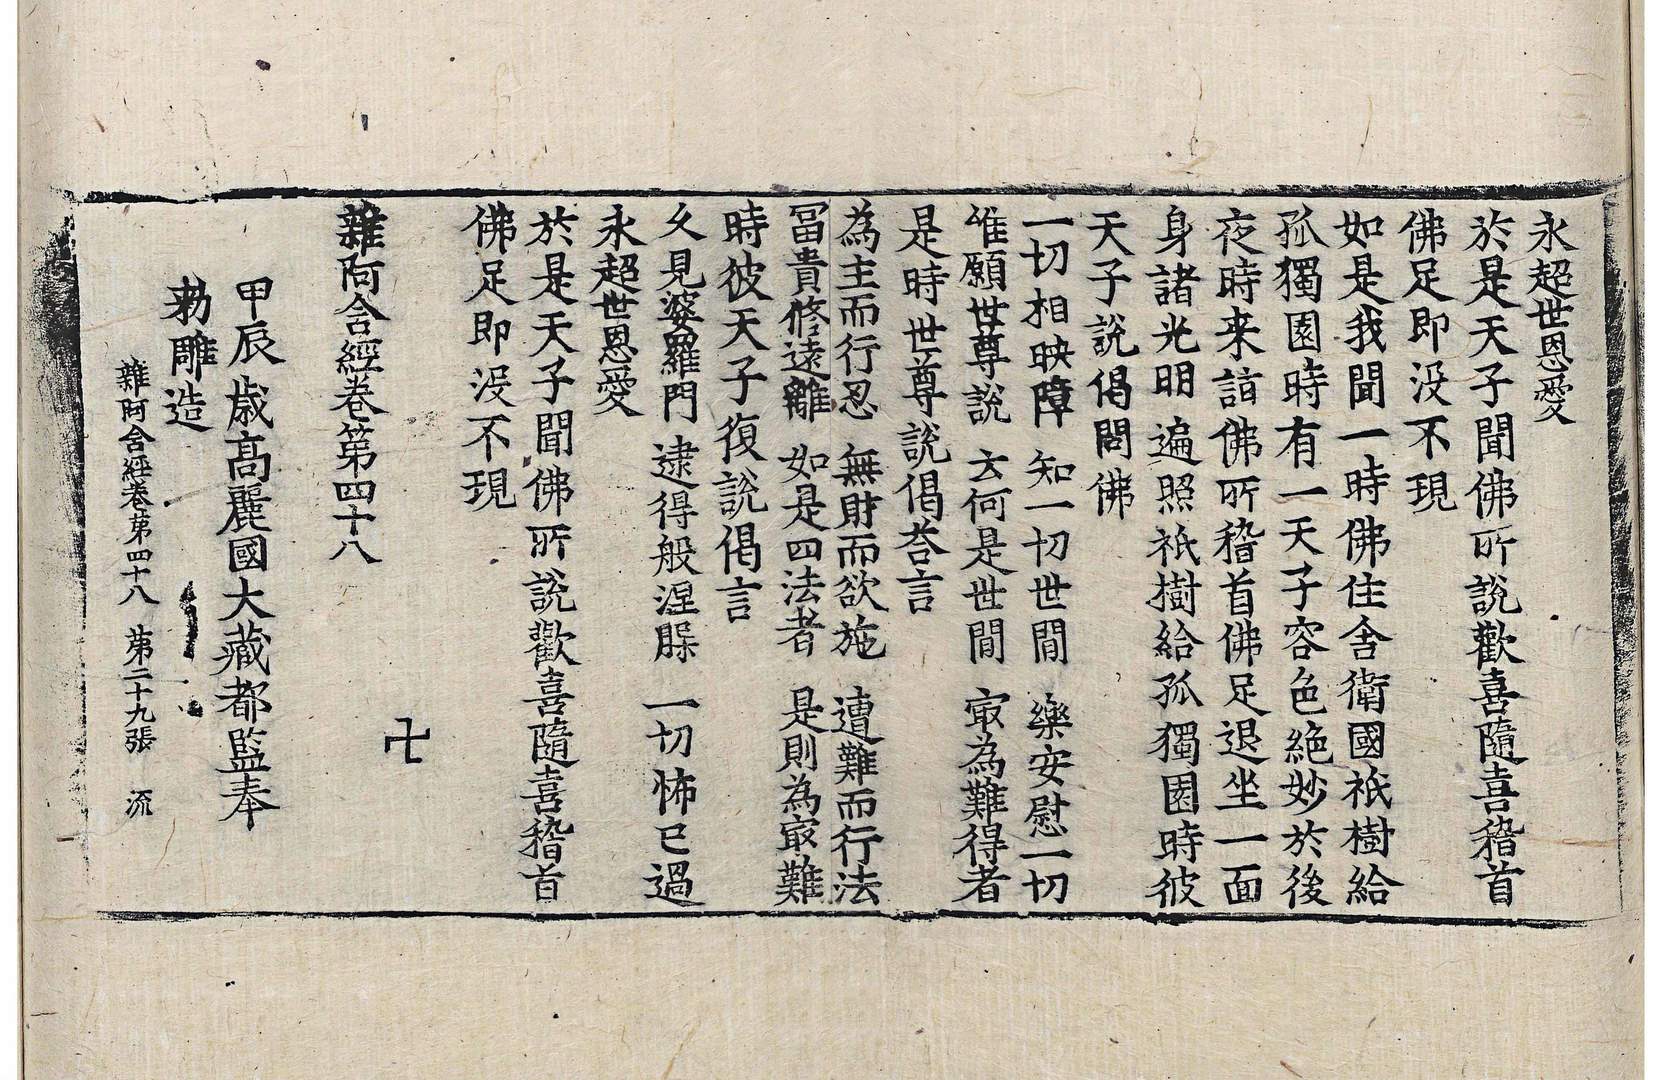 永超世恩愛
於是天子聞佛所說歡喜隨喜稽首
佛足即没不現
如是我聞一時佛住舍衛國祇樹給
孤獨園時有一天子容色絶妙於後
夜時来詣佛所稽首佛足退坐一面
身諸光明遍照祇樹給孤獨園時彼
天子說偈問佛
一切相映障 知一切世間 樂安慰一切
唯願世尊說 云何是世間 㝡為難得者
是時世尊說偈荅言
為主而行忍 無財而欲施 遭難而行法
冨貴修遠離 如是四法者 是則為㝡難
時彼天子復說偈言
久見婆羅門 逮得般涅槃 一切怖已過
永超世恩愛
於是天子聞佛所說歡喜隨喜稽首
佛足即没不現
卍
雜阿含經卷第四十八
甲辰歳髙麗國大藏都監奉
勑雕造
雜阿含經卷第四十八 第二十九張 流